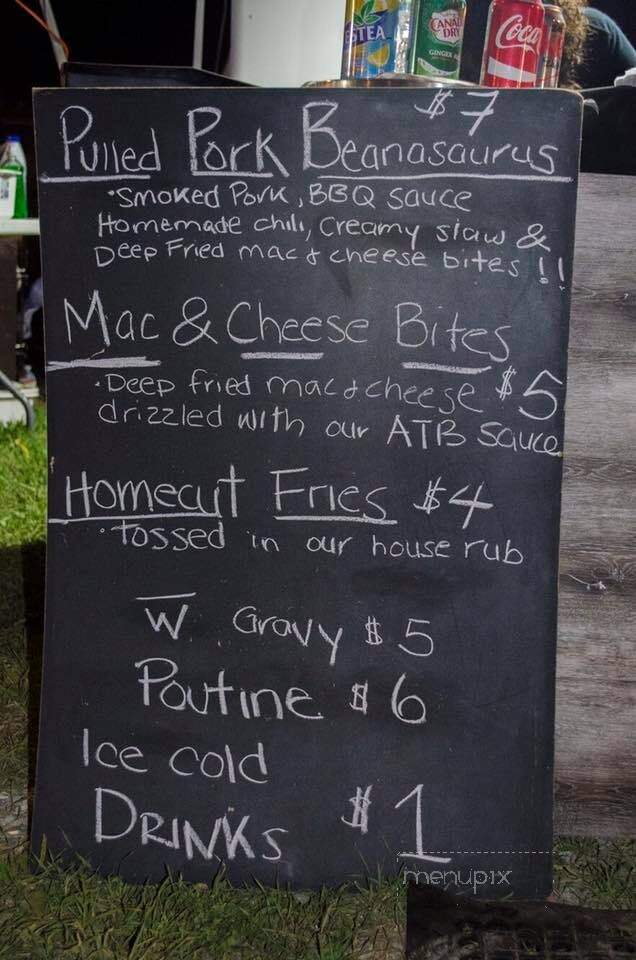 ESTEA
CANADA
DRY
GINGER
Coca
$7
Pulled Pork Beanasaurus
•Smoked Pork, BBQ sauce
Homemade chili, creamy slaw &
Deep Fried mac & cheese bites !!
Mac & Cheese Bites
•Deep fried mac & cheese $5
drizzled with our ATB sauce
Homecut Fries $4
•Tossed in our house rub
W Gravy $5
Poutine $6
Ice cold
DRINKS $1
menupix